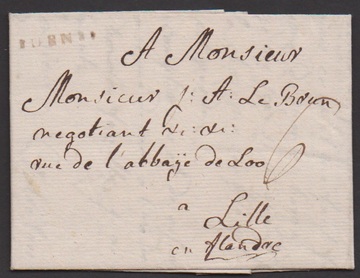 A Monsieur
Monsieur j: A: Le Brun
negotiant &: &:
rue de l'abbaÿe de Loo
a
Lille
en flandre